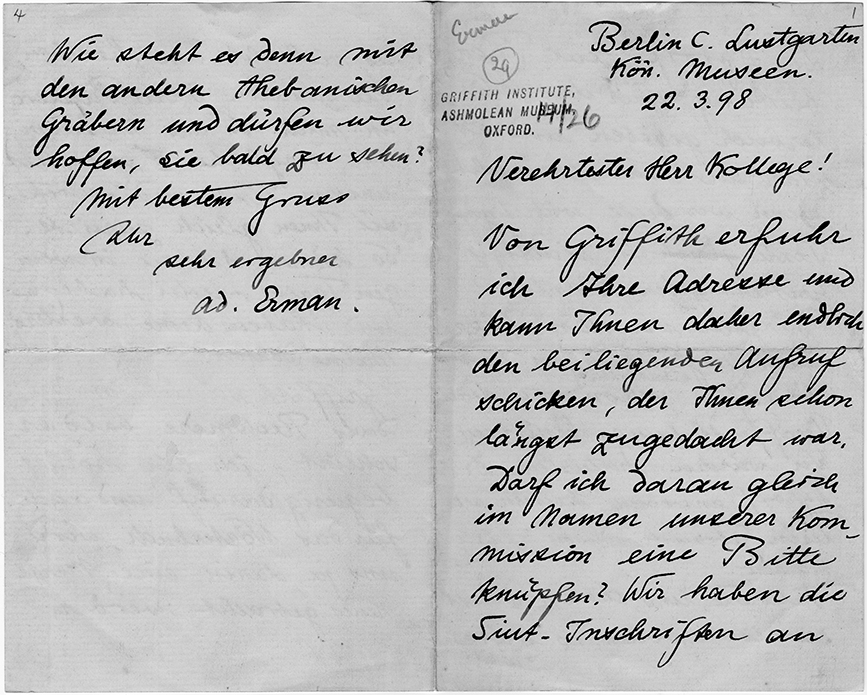 4
Wie steht es denn mit
den andern thebanischen
Gräbern und dürfen wir
hoffen, sie bald zu sehen?
Mit bestem Gruss
Ihr
sehr ergebner
Ad. Erman.
1
Erman
29
GRIFFITH INSTITUTE,
ASHMOLEAN MUSEUM,
OXFORD.
Berlin C. Lustgarten
Kön. Museen.
22.3.98
Verehrtester Herr Kollege!
Von Griffith erfuhr
ich Ihre Adresse und
kann Ihnen daher endlich
den beiliegenden Aufruf
schicken, der Ihnen schon
längst zugedacht war.
Darf ich daran gleich
im Namen unserer Kom-
mission eine Bitte
knüpfen? Wir haben die
Siut-Inschriften an